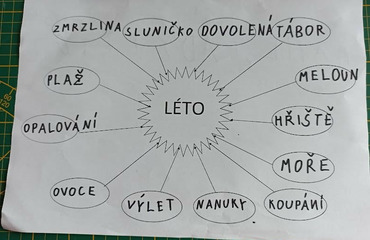 ZMRZLINA
SLUNIČKO
DOVOLENÁ
TÁBOR
PLAŽ
MELOUN
LÉTO
OPALOVÁNÍ
HŘIŠTĚ
MOŘE
OVOCE
VÝLET
NANUKY
KOUPÁNÍ